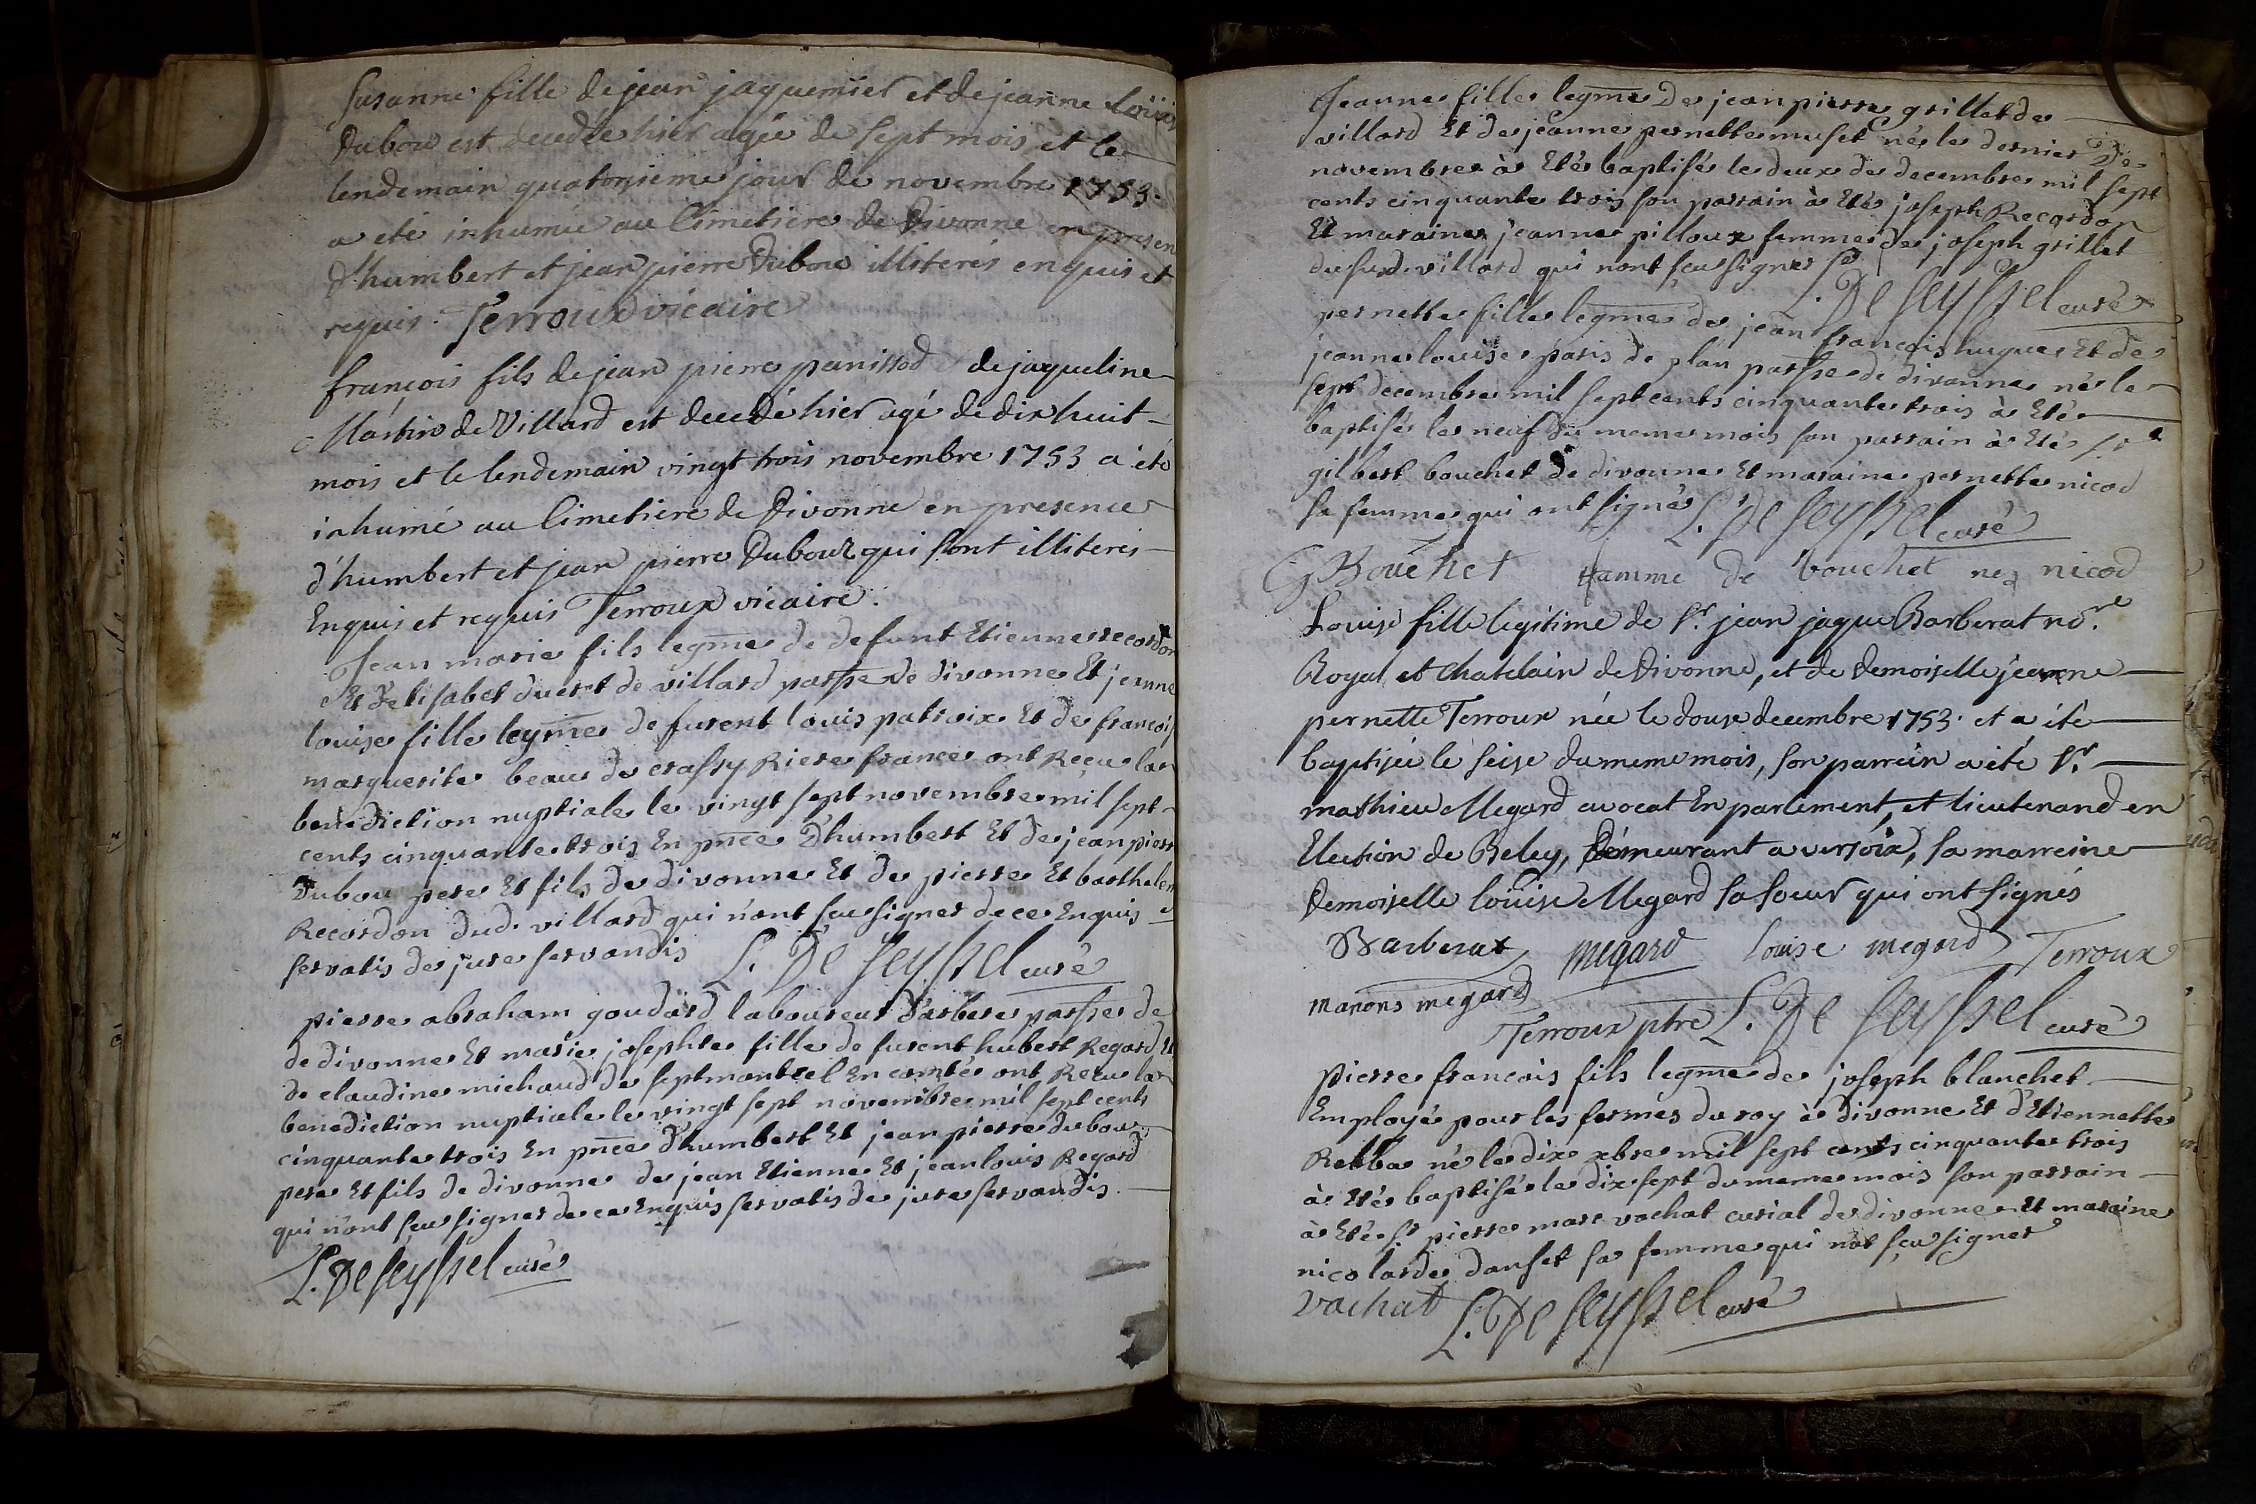 Susanne fille de jean jaquemier et de jeanne Loüise
Dubou est decedée hier agée de sept mois et le
lendemain quatorsieme jour de novembre 1753.
a eté inhumée au Cimetiere de Divonne en presen
d'humbert et jean pierre Dubou illiterés enquis et
requis. Terroux vicaire
françois fils de jean pierre panissod de jaqueline
Martin de Villard est decedé hier agé de dix huit
mois et le lendemain vingt trois novembre 1753 a été
inhumé au Cimetiere de Divonne en presence
d'humbert et jean pierre Dubouz qui sont illiterés
Enquis et requis Terroux vicaire.
Jean marie fils legme de defunt Etienne recordon
Et d'elisabet duret de villard parsse de divonne Et jeanne
louise fille legme de furent louis patroix Et de françois
marguerite beau de crassy Riere france ont Receu la
benediction nuptiale le vingt sept novembre mil sept
cents cinquante trois En pnce D'humbert Et de jean pierr
Dubou pere Et fils de divonne Et de pierre Et barthelem
Recordon dud. villard qui n'ont sceu signer de ce Enquis
servatis de jure servandis L. De Seyssel curé
pierre abraham goudard laboureur d'arbere parsse de
de divonne Et marie josephte fille de furent hubert Regard Et
de claudine michaud de septmontcel En comté ont Receu la
benediction nuptiale le vingt sept novembre mil sept cents
cinquante trois En pnce d'humbert Et jean pierre dubou
pere Et fils de divonne de jean Etienne Et jean louis Regard
qui n'ont sceu signer de ce Enquis servatis de jure servandis.
L. De Seyssel curé
Jeanne fille legme de jean pierre grillet de
villard Et de jeanne pernette muset née le dernier De
novembre à Eté baptisée le deux de decembre mil sept
cents cinquante trois son parrain à Eté joseph Recordon
Et maraine jeanne pilloux femme de joseph grillet
dusud. villard qui n'ont sceu signer
L. De Seyssel curé
pernette fille legme de jean françois hugue Et de
jeanne louise paris de plan parsse de divonne née le
sept decembre mil sept cents cinquante trois à Eté
baptisée le neuf du meme mois son parrain à Eté sr
gilbert bouchet de divonne Et maraine pernette nicod
sa femme qui ont signé L. De Seyssel curé
G Bouchet famme de bouchet ne nicod
Louise fille legitime de Sr. jean jaque Barberat nore.
Royal et Chatelain de Divonne, et de Demoiselle jeanne
pernette Terroux née le douze decembre 1753. et a été
baptisée le seise du meme mois, son parrein a eté Sr.
mathieu Megard avocat En parlement, et lieutenand en
Election de Beley, Demeurant a versoix, sa marreine
Demoiselle loüise Megard sa soeur qui ont signés
Barberat Megard Louise megard Terroux
manons megard
Terroux ptre L. De Seyssel curé
pierre françois fils legme de joseph blanchet
Employé pour les fermes du roy à divonne Et d'Etiennette
Rebba né le dix xbre mil sept cents cinquante trois
à Eté baptisé le dix sept du meme mois son parrain
à Eté sr pierre marc vachat curial de divonne Et maraine
nicolarde danset sa femme qui n'at sceu signer
Vachat L. De Seyssel curé